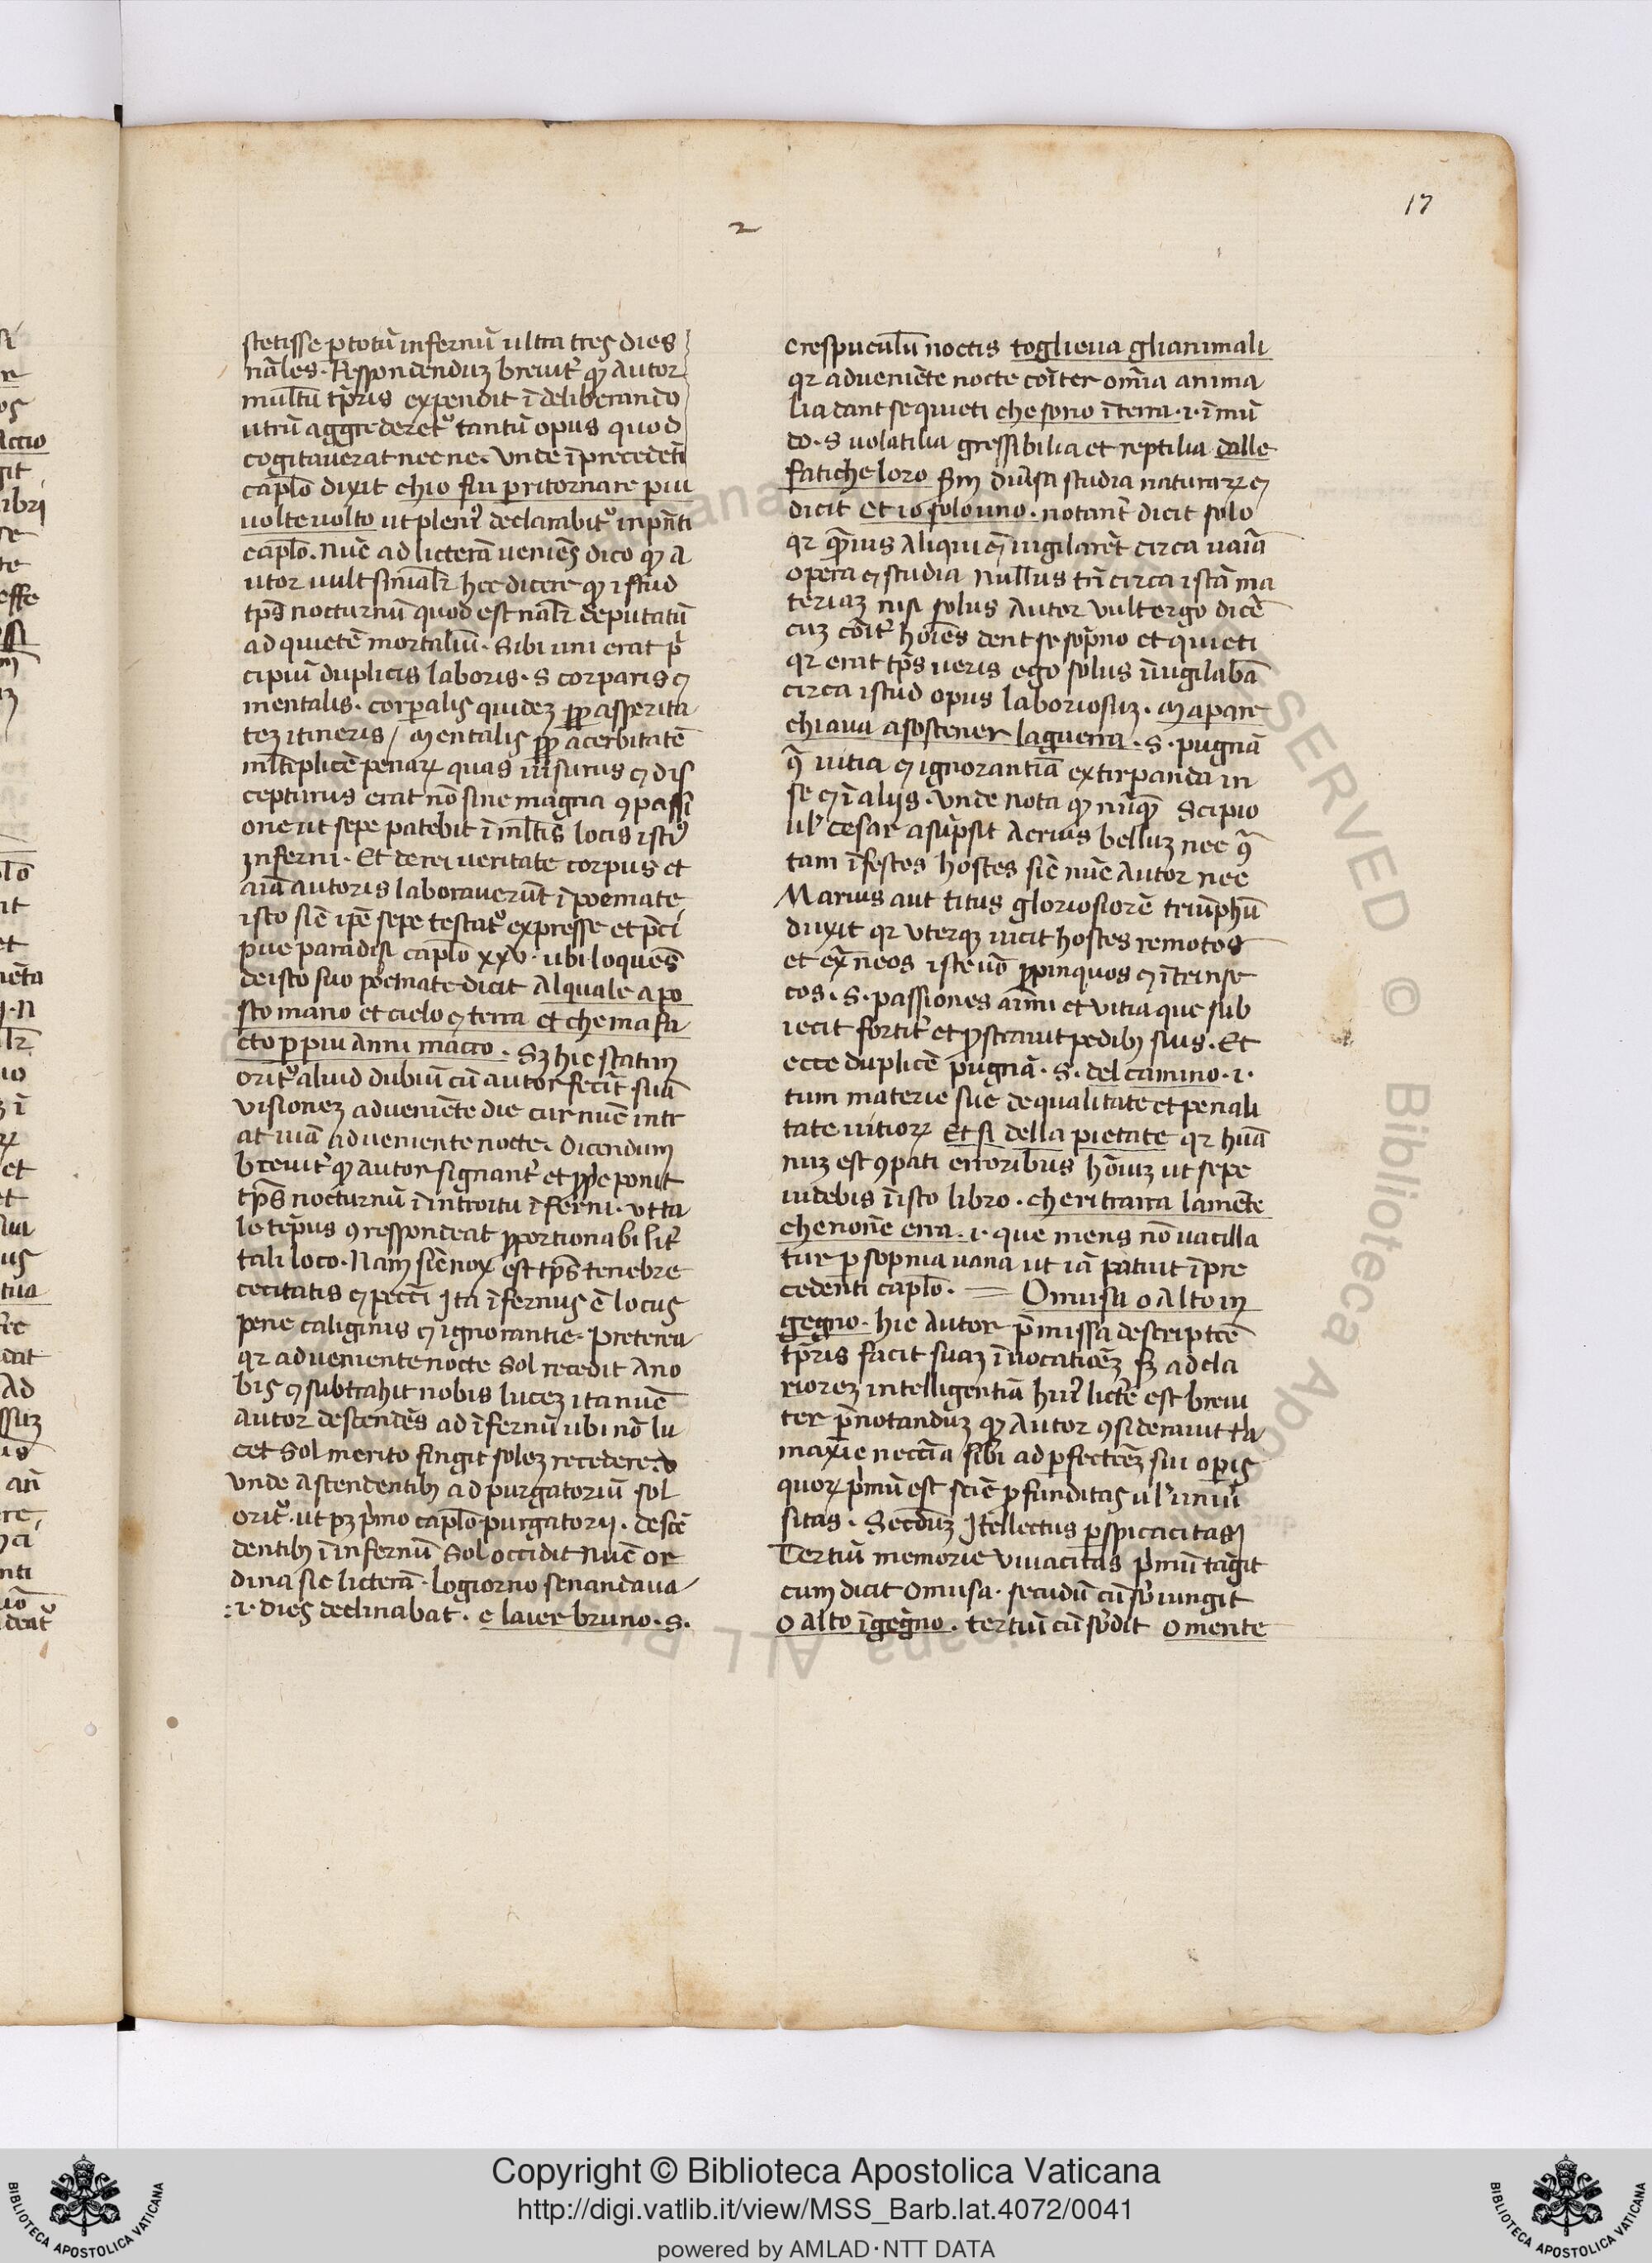 17
2
stetisse ꝑ totū infernū ultra tres dies
nāles. Respondenduꝫ breuit᷑ ꝙ Autor
multū tp̄ris expendit ī deliberando
utrū aggrederet᷑ tantū opus quod
cogitauerat nec ne. Vnde ī precedēti
cap̄lo dixit chio fui ꝑ ritornare piu
uolte uolto ut pleni᷒ declarabit᷑ in pn̄ti
cap̄lo. Nūc ad licterā ueniēs dico ꝙ a
utor uult finialr̄ hec dicere ꝙ istud
tp̄s nocturnū quod est nālr̄ deputatū
ad quietē mortaliū. Sibi uni erat pͥ
cipiū duplicis laboris. S corparis ⁊
mentalis. corꝑalis quideꝫ ꝓp̄ asperita
teꝫ itineris / mentalis ꝓp̄ acerbitatē
ml̄tiplicē penaꝝ quas uisurus ⁊ dis
cepturus erat nō sine magna ꝯpassi
one ut sepe patebit ī ml̄tis locis isti᷒
inferni. Et de rei ueritate corpus et
aīa autoris laborauerūt ī poemate
isto sic̄ ip̄e sepe testat᷑ expresse et p̄ci
pue paradisi cap̄lo xxv. ubi loquēs
de isto suo poemate dicit Al quale a po
sto mano et cielo ⁊ terra et che ma fa
cto ꝑ piu Anni macro. Sꝫ hic statim
orit᷑ aliud dubiū cū autor fecit suā
visioneꝫ adueniēte die cur nūc intr
at uiā adueniente nocte. Dicendum
breuit᷑ ꝙ autor signant᷑ et ꝓp̄e ponit
tp̄s nocturnū ī introitu īferni. vt ta
le tēpus ꝯrespondeat ꝓportionabilit᷑
tali loco. Nam sic̄ nox est tp̄s tenebre
cecitatis ⁊ pecc̄i Ita īfernus ē locus
pene caliginis ⁊ ignorantie. Preterea
qꝛ adueniente nocte Sol recedit A no
bis ⁊ subtrahit nobis luceꝫ ita nūc
autor descendēs ad īfernū ubi nō lu
cet Sol merito fingit soleꝫ recedere.
vnde Ascendentibꝫ ad purgatoriū sol
orit᷑. ut pꝫ pͥmo cap̄lo purgatorij. descē
dentibꝫ ī infernū Sol occidit Nūc or
dina sic licterā. Lo giorno senandaua
.i. dies declinabat. e laier bruno. S.
crespuculū noctis toglieua gli animali
qꝛ adueniēte nocte cōiter omīa anima
lia dant se quieti che sono ī terra .i. ī mū
do. S uolatilia gressibilia et reptilia dalle
fatiche loro ẜm diūsa studia naturaꝝ ⁊
dicit Et io solo uno. notant᷑ dicit solo
qꝛ quāuis Aliqui ⁊ uigilarēt circa uaria
opera ⁊ studia Nullus tn̄ circa istā ma
teriaꝫ nisi solus Autor vult ergo dicē
cuꝫ cōit᷑ hoīes dent se sopno et quieti
qꝛ erat tp̄s ueris ego solus īuigilabā
circa istud opus laboriosuꝫ. Mapare
chiaua a sostener la guerra. S. pugnā
ꝯ̄ uitia ⁊ ignorantiā extirpanda in
se ⁊ ī aliis. Vnde nota ꝙ nūquā Scipio
ul̄ Cesar asūpsit Acrius belluꝫ nec ꝯ̄
tam īfestos hostes sic̄ nūc Autor nec
Marius aut titus gloriosiorē triūphū
duxit qꝛ vterqꝫ uicit hostes remotos
et ex̄neos iste uō ꝓpinquos ⁊ ītrinse
cos. S. passiones aīmi et vitia que sub
iecit fortit᷑ et ꝓstrauit pedibꝫ suis. Et
ecce duplicē pugnā. S. del camino. i.
tum materie sue de qualitate et penali
tate uitioꝝ Et si della pietate qꝛ humā
nuꝫ est ꝯpati erroribus hoīuꝫ ut sepe
uidebis ī isto libro. che ritrarra la mēte
che non erra. i. que mens nō uacilla
tur ꝑ sopnia uana ut iā patuit ī pre
cedenti cap̄lo. O musa o Alto in
gegno. hic Autor p̄missa descriptōe
tp̄ris facit suaꝫ īuocatiōeꝫ sꝫ ad cla
rioreꝫ intelligentiā hui᷒ lictere est breui
ter p̄notanduꝫ ꝙ Autor ꝯsiderauit tria
maxīe neccīa sibi ad ꝑfectiōeꝫ sui oꝑis
quoꝝ pͥmū est sciē ꝓfunditas ul̄ uniū
sitas. Secōduꝫ Itellectus ꝑspicacitas
Tertiū memorie viuacitas pͥmū tāgit
cum dicit O musa. secūdū cū sb̄iungit
O alto īgegno. tertiū cū sb̄dit O mente
Copyright © Biblioteca Apostolica Vaticana
http://digi.vatlib.it/view/MSS_Barb.lat.4072/0041
powered by AMLAD·NTT DATA